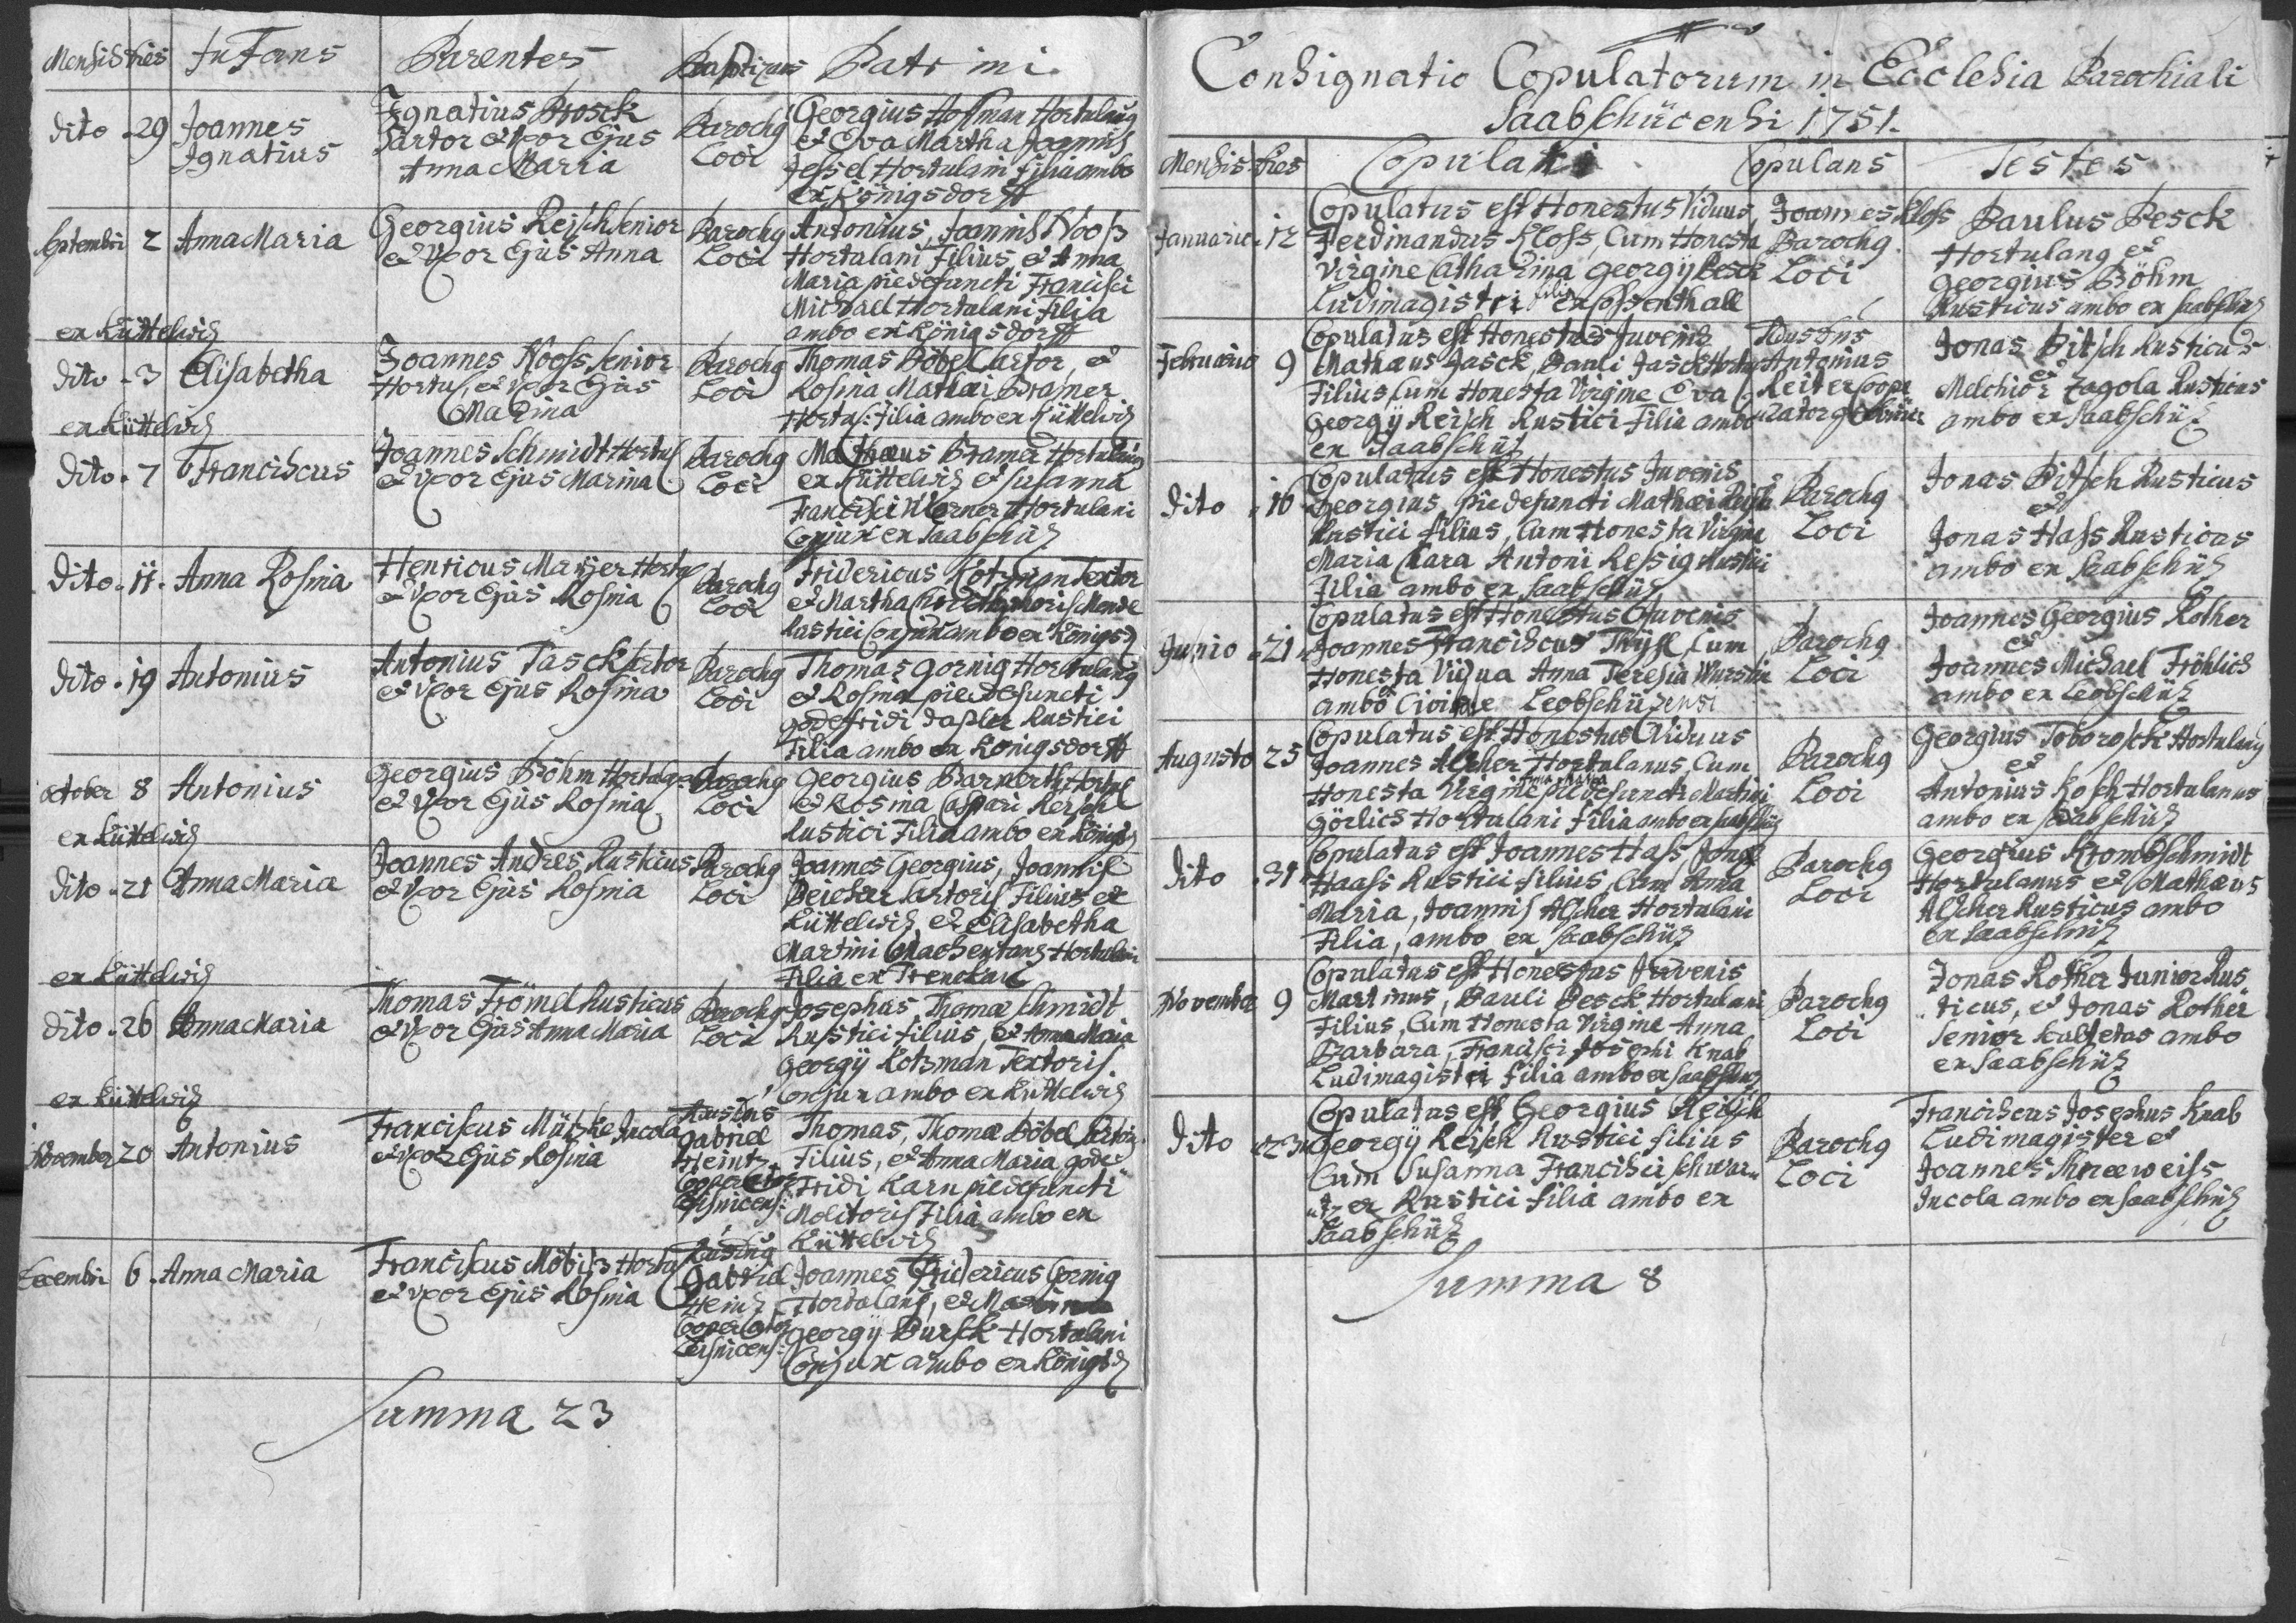 Mensis Dies Infans Parentes Baptizans Patrini
dito 29 Joannes Ignatius
Ignatius Brosck
Sartor et Uxor Ejus
Anna Maria
Parochg Loci
Georgius Hofman Hortulang
et Eva Martha Joannis
Jessel Hortulani filia ambo
ex Königsdorff
Septembri 2 Anna Maria
ex Küttelwiz
Georgius Reisch Senior
et Uxor Ejus Anna
Parochg Loci
Antonius Joannis Kloss
Hortulani Filius et Anna
Maria piedefuncti Francisci
Michael Hortulani Filia
ambo ex Königsdorff
dito 3 Elisabetha
ex Küttelwiz
Joannes Kloss Senior
Hortul. et Uxor Ejus
Marina
Parochg Loci
Thomas Böbel Sartor, et
Rosina Mathæi Bramer
Hortul: filia ambo ex Küttelwiz
dito 7 Franciscus
Joannes Schmidt Hortul
et Uxor Ejus Marina
Parochg Loci
Mathæus Bramer Hortulang
ex Küttelwiz et Susanna
Francisci Werner Hortulani
Conjux ex Saabschüz
dito 11 Anna Rosina
Henricus Hortul
et Uxor Ejus Rosina
Parochg Loci
Fridericus Kotzman Textor
et Martha Mende
Rustici Conjux ambo ex Königsd
dito 19 Antonius
Antonius Jasck Sartor
et Uxor Ejus Rosina
Parochg Loci
Thomas Gornig Hortulang
et Rosina piedefuncti
Godefridi Rustici
Filia ambo ex Königsdorff
October 8 Antonius
ex Küttelwiz
Georgius Böhm Hortulg
et Uxor Ejus Rosina
Parochg Loci
Georgius Barnerth Hortul
et Rosina Caspari
Rustici Filia ambo ex Königsd
dito 21 Anna Maria
ex Küttelwiz
Joannes Andres Rusticus
et Uxor Ejus Rosina
Parochg Loci
Joannes Georgius, Joannis
Sartoris Filius ex
Küttelwiz, et Elisabetha
Martini Hortulani
Filia ex
dito 26 Anna Maria
ex Küttelwiz
Thomas Frömel Rusticus
et Uxor Ejus Anna Maria
Parochg Loci
Josephus, Thomæ Schmidt
Rustici filius, et Anna Maria
Georgÿ Kotzman Textoris
Conjux ambo ex Küttelwiz
November 20 Antonius
Franciscus Mützke Incola
et Uxor Ejus Rosina
Gabriel
Heintz
Cooperator
Thomas, Thomæ Böbel
Filius, et Anna Maria Gode-
fridi Karn piedefuncti
Molitoris Filia ambo ex
Küttelwiz
Decembri 6 Anna Maria
Franciscus Möbiss Hortul
et Uxor Ejus Rosina
Gabriel
Heinz
Cooperator
Joannes Fridericus Gornig
Hortulang, et
Georgÿ Bursck Hortulani
Conjux ambo ex Königsd
Summa 23
Consignatio Copulatorum in Ecclesia Parochiali
Saabschücensi 1751.
Mensis Dies Copulati Copulans Testes
Januario 12
Copulatus est Honestus Viduus,
Ferdinandus Kloss, Cum Honesta
Virgine Catharina Georgÿ Pesck
Ludimagistri filia ex
Joannes Kloss
Parochg
Loci
Paulus Pesck
Hortulang et
Georgius Böhm
Rusticus ambo ex Saabschüz
Februario 9
Copulatus est Honestus Juvenis
Mathæus Jasck, Pauli Jasck Hortu
Filius, Cum Honesta Virgine Eva
Georgÿ Reisch Rustici Filia ambo
ex Saabschüz
Antonius
Reiter Coope
rator
Jonas Pitsch Rusticus
et
Melchior Zagola Rusticus
ambo ex Saabschüz
dito 16
Copulatus est Honestus Juvenis
Georgius, piedefuncti Mathæi Reisch
Rustici filius, Cum Honesta Virgine
Maria Clara Antoni Ressig Rustici
Filia ambo ex Saabschüz
Parochg
Loci
Jonas Pitsch Rusticus
et
Jonas Hass Rusticus
ambo ex Saabschüz
Junio 21
Copulatus est Honestus Juvenis
Joannes Franciscus Thÿse Cum
Honesta Vidua Anna Teresia
ambo Leobschüzensi
Parochg
Loci
Joannes Georgius Rother
et
Joannes Michael Fröhlich
ambo ex Leobschüz
Augusto 25
Copulatus est Honestus Viduus
Joannes Alscher Hortulanus, Cum
Honesta Virgine Anna Maria piedefuncti Martini
Görlich Hortulani Filia ambo ex Saabschüz
Parochg
Loci
Georgius Hortulang
et
Antonius Kosch Hortulanus
ambo ex Saabschüz
dito 31
Copulatus est Joannes Hass, Jonæ
Haass Rustici filius, Cum Anna
Maria, Joannis Alscher Hortulani
Filia, ambo ex Saabschüz
Parochg
Loci
Georgius Krombschmidt
Hortulanus et Mathæus
Alscher Rusticus ambo
ex Saabschüz
November 9
Copulatus est Honestus Juvenis
Martinus, Pauli Pesck Hortulani
Filius, Cum Honesta Virgine Anna
Barbara, Francisci Josephi Knab
Ludimagistri filia ambo ex Saabschüz
Parochg
Loci
Jonas Rother Junior Rus
ticus, et Jonas Rother
Senior ambo
ex Saabschüz
dito 23
Copulatus est Georgius Reisch
Georgÿ Reisch Rustici filius
Cum Susanna Francisci Schwar-
tzer Rustici filia ambo ex
Saabschüz
Parochg
Loci
Franciscus Josephus Knab
Ludimagister et
Joannes Schneeweiss
Incola ambo ex Saabschüz
Summa 8